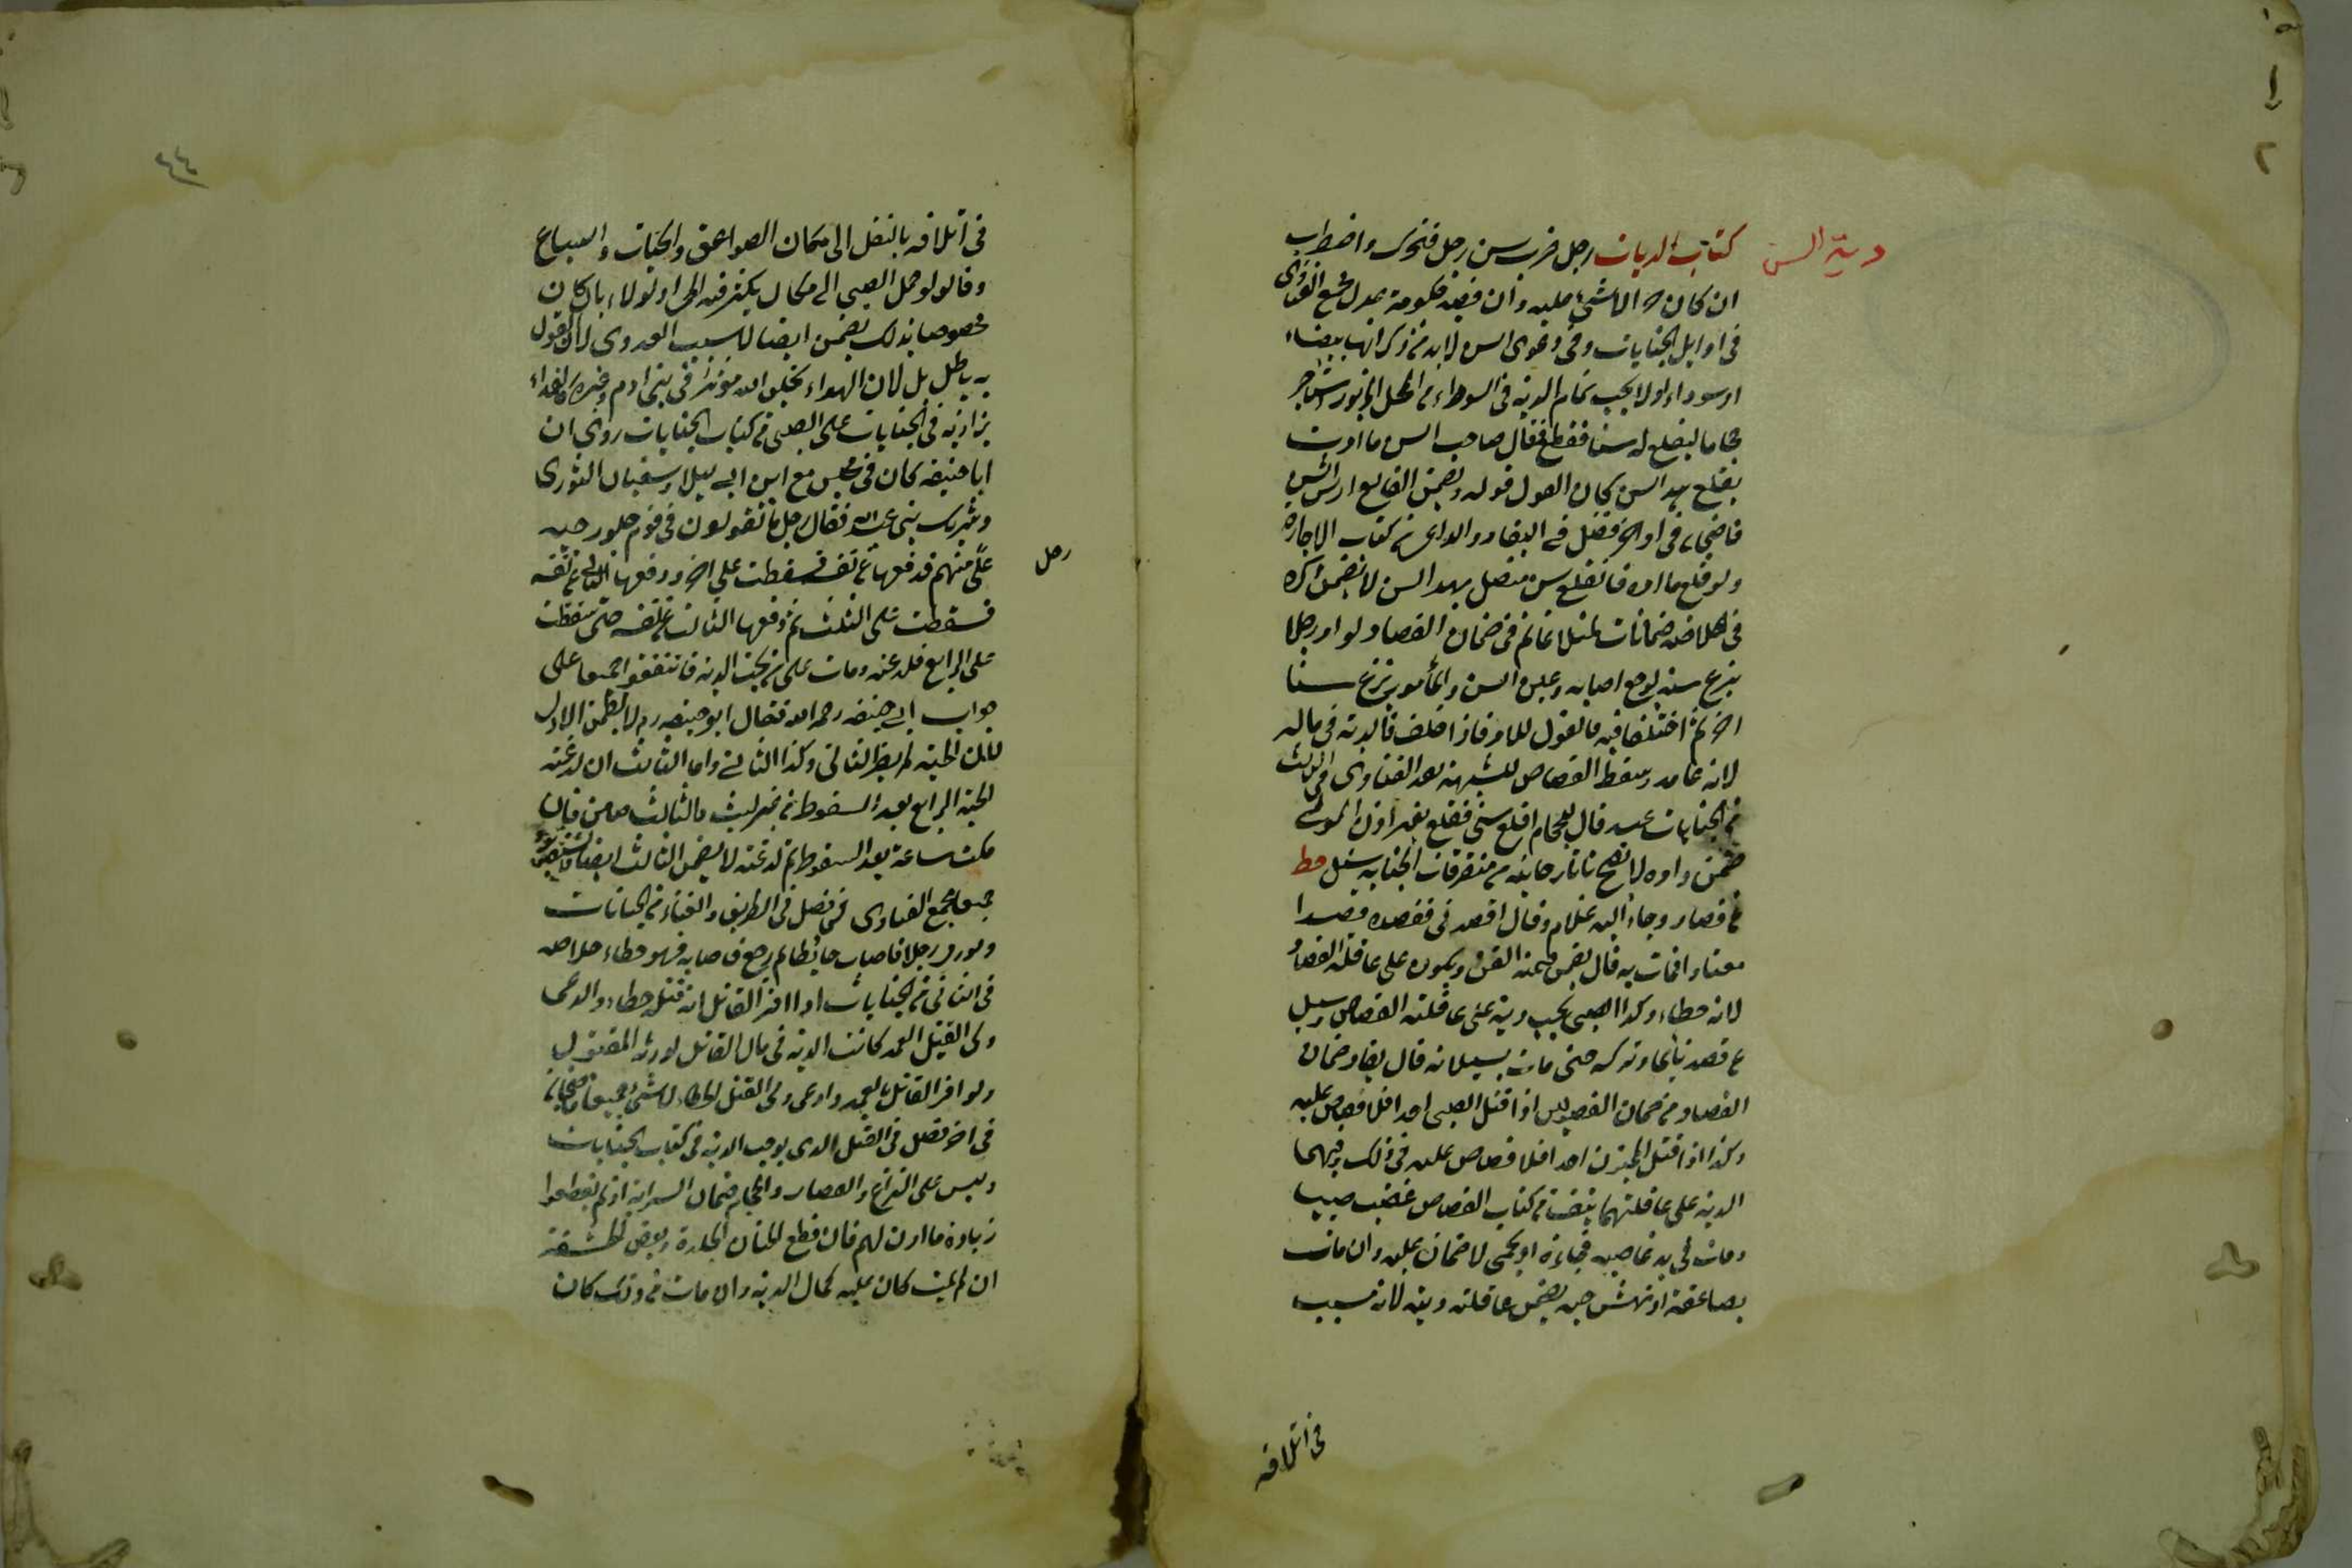 دية السن
كتاب الديات رجل ضرب سن رجل فتحرك واضطرب
ان كان لا شئ عليه وان ففيه حكومة عدل مجمع الفتاوى
فى اوايل الجنايات وفى دعوى السن لابد من ذكر انها بيضاء
او سوداء اولا يجب تمام الدية فى السوداء من المحل المزبور استأجر
حجاما ليقلع له سنا فقلع فقال صاحب السن ما امرت
بقلع هذا السن كان القول قوله ويضمن القالع ارش السن
قاضيخان فى اواخر فصل فى البقار والراعى من كتاب الاجارة
ولو قلع ما امره فانقلع سن متصل بهذا السن لا يضمن ذكره
فى ضمانات غانم فى ضمان الفصاد لو امر رجلا
بنزع سنه لوجع اصابه وعين السن والمأمور نزع سنا
اخر ثم اختلفا فيه فالقول للامر فاذا حلف فالدية فى ماله
لانه عامد وسقط القصاص للشبهة الفتاوى فى الثالث
من الجنايات عبد قال للحجام اقلع سنى فقلع بغير اذن المولى
ضمن وامره لا يصح تاتارخانيه من متفرقات الجناية سئل
عن فصاد وجاء اليه غلام وقال افصدنى ففصده فصدا
معتادا فمات به قال يضمن قيمة القن ويكون على عاقلة الفصاد
لانه خطاء وكذا الصبى يجب ديته على عاقلته الفصاص وسئل
عن فصد نائما وتركه حتى مات بسيلانه قال يقاد ضمان
الفصاد من ضمان الفصولين اذا قتل الصبى احدا فلا قصاص عليه
وكذا اذا قتل المجنون احدا فلا قصاص عليه فى ذلك وفيهما
الدية على عاقلتهما من كتاب القصاص غصب صبيا
ومات فى يد غاصبه فجاءة او بحمى لا ضمان عليه وان مات
بصاعقة او نهش حية يضمن عاقلته ديته لانه تسبب
فى اتلافه
فى اتلافه بالنقل الى مكان الصواعق والحيات والسباع
وقالوا لو حمل الصبى الى مكان يكثر فيه الحمى او الوباء بان كان
مخصوصا بذلك يضمن ايضا لا بسبب العدوى لان القول
به باطل بل لان الهواء بخلق الله مؤثر فى بنى ادم وغيره كالغذاء
بزازيه فى الجنايات على الصبى من كتاب الجنايات روى ان
ابا حنيفه كان فى مجلس مع ابن ابى ليلى وسفيان الثورى
وشريك بنى عبد الله فقال رجل ما تقولون فى قوم جلوس حية
رجل
على منهم فدفعها عن نفسه فسقطت على اخر ودفعها الثانى عن نفسه
فسقطت على الثالث ثم دفعها الثالث عن نفسه حتى سقطت
على الرابع فلدغته ومات على من يجب الدية فاتفقوا جميعا على
جواب ابى حنيفه رحمه الله فقال ابو حنيفه لا يضمن الاول
لان الحية لم يضر الثانى وكذا الثانى واما الثالث ان لدغته
الحية الرابع بعد السقوط من غير لبث فالثالث ضامن وان
مكثت ساعة بعد السقوط ثم لدغته لا يضمن الثالث ايضا
جميعا مجمع الفتاوى من فصل فى الطريق والفناء من الجنايات
ولو رمى رجلا فاصاب حائطا ثم رجع فاصابه فهو خطاء خلاصه
فى الثانى من الجنايات اذا اقر القاتل انه قتله خطاء وادعى
ولى القتيل العمد كانت الدية فى مال القاتل لورثة المقتول
ولو اقر القاتل بالعمد وادعى ولى القتيل الخطاء لا شئ قاضيخان
فى اخر فصل فى القتل الذى يوجب الدية من كتاب الجنايات
وليس على البزاغ والفصاد والحجام ضمان السراية اذا لم يقطعوا
زيادة ما اذن لهم فان قطع الختان الجلدة وبعض الحشفة
ان لم يمت كان عليه كمال الدية وان مات من ذلك كان